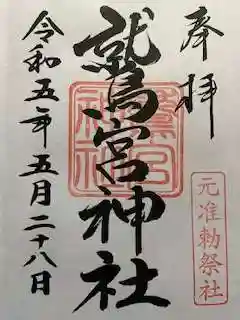 奉拝
鷲宮神社
鷲宮神社
元准勅祭社
令和五年五月二十八日